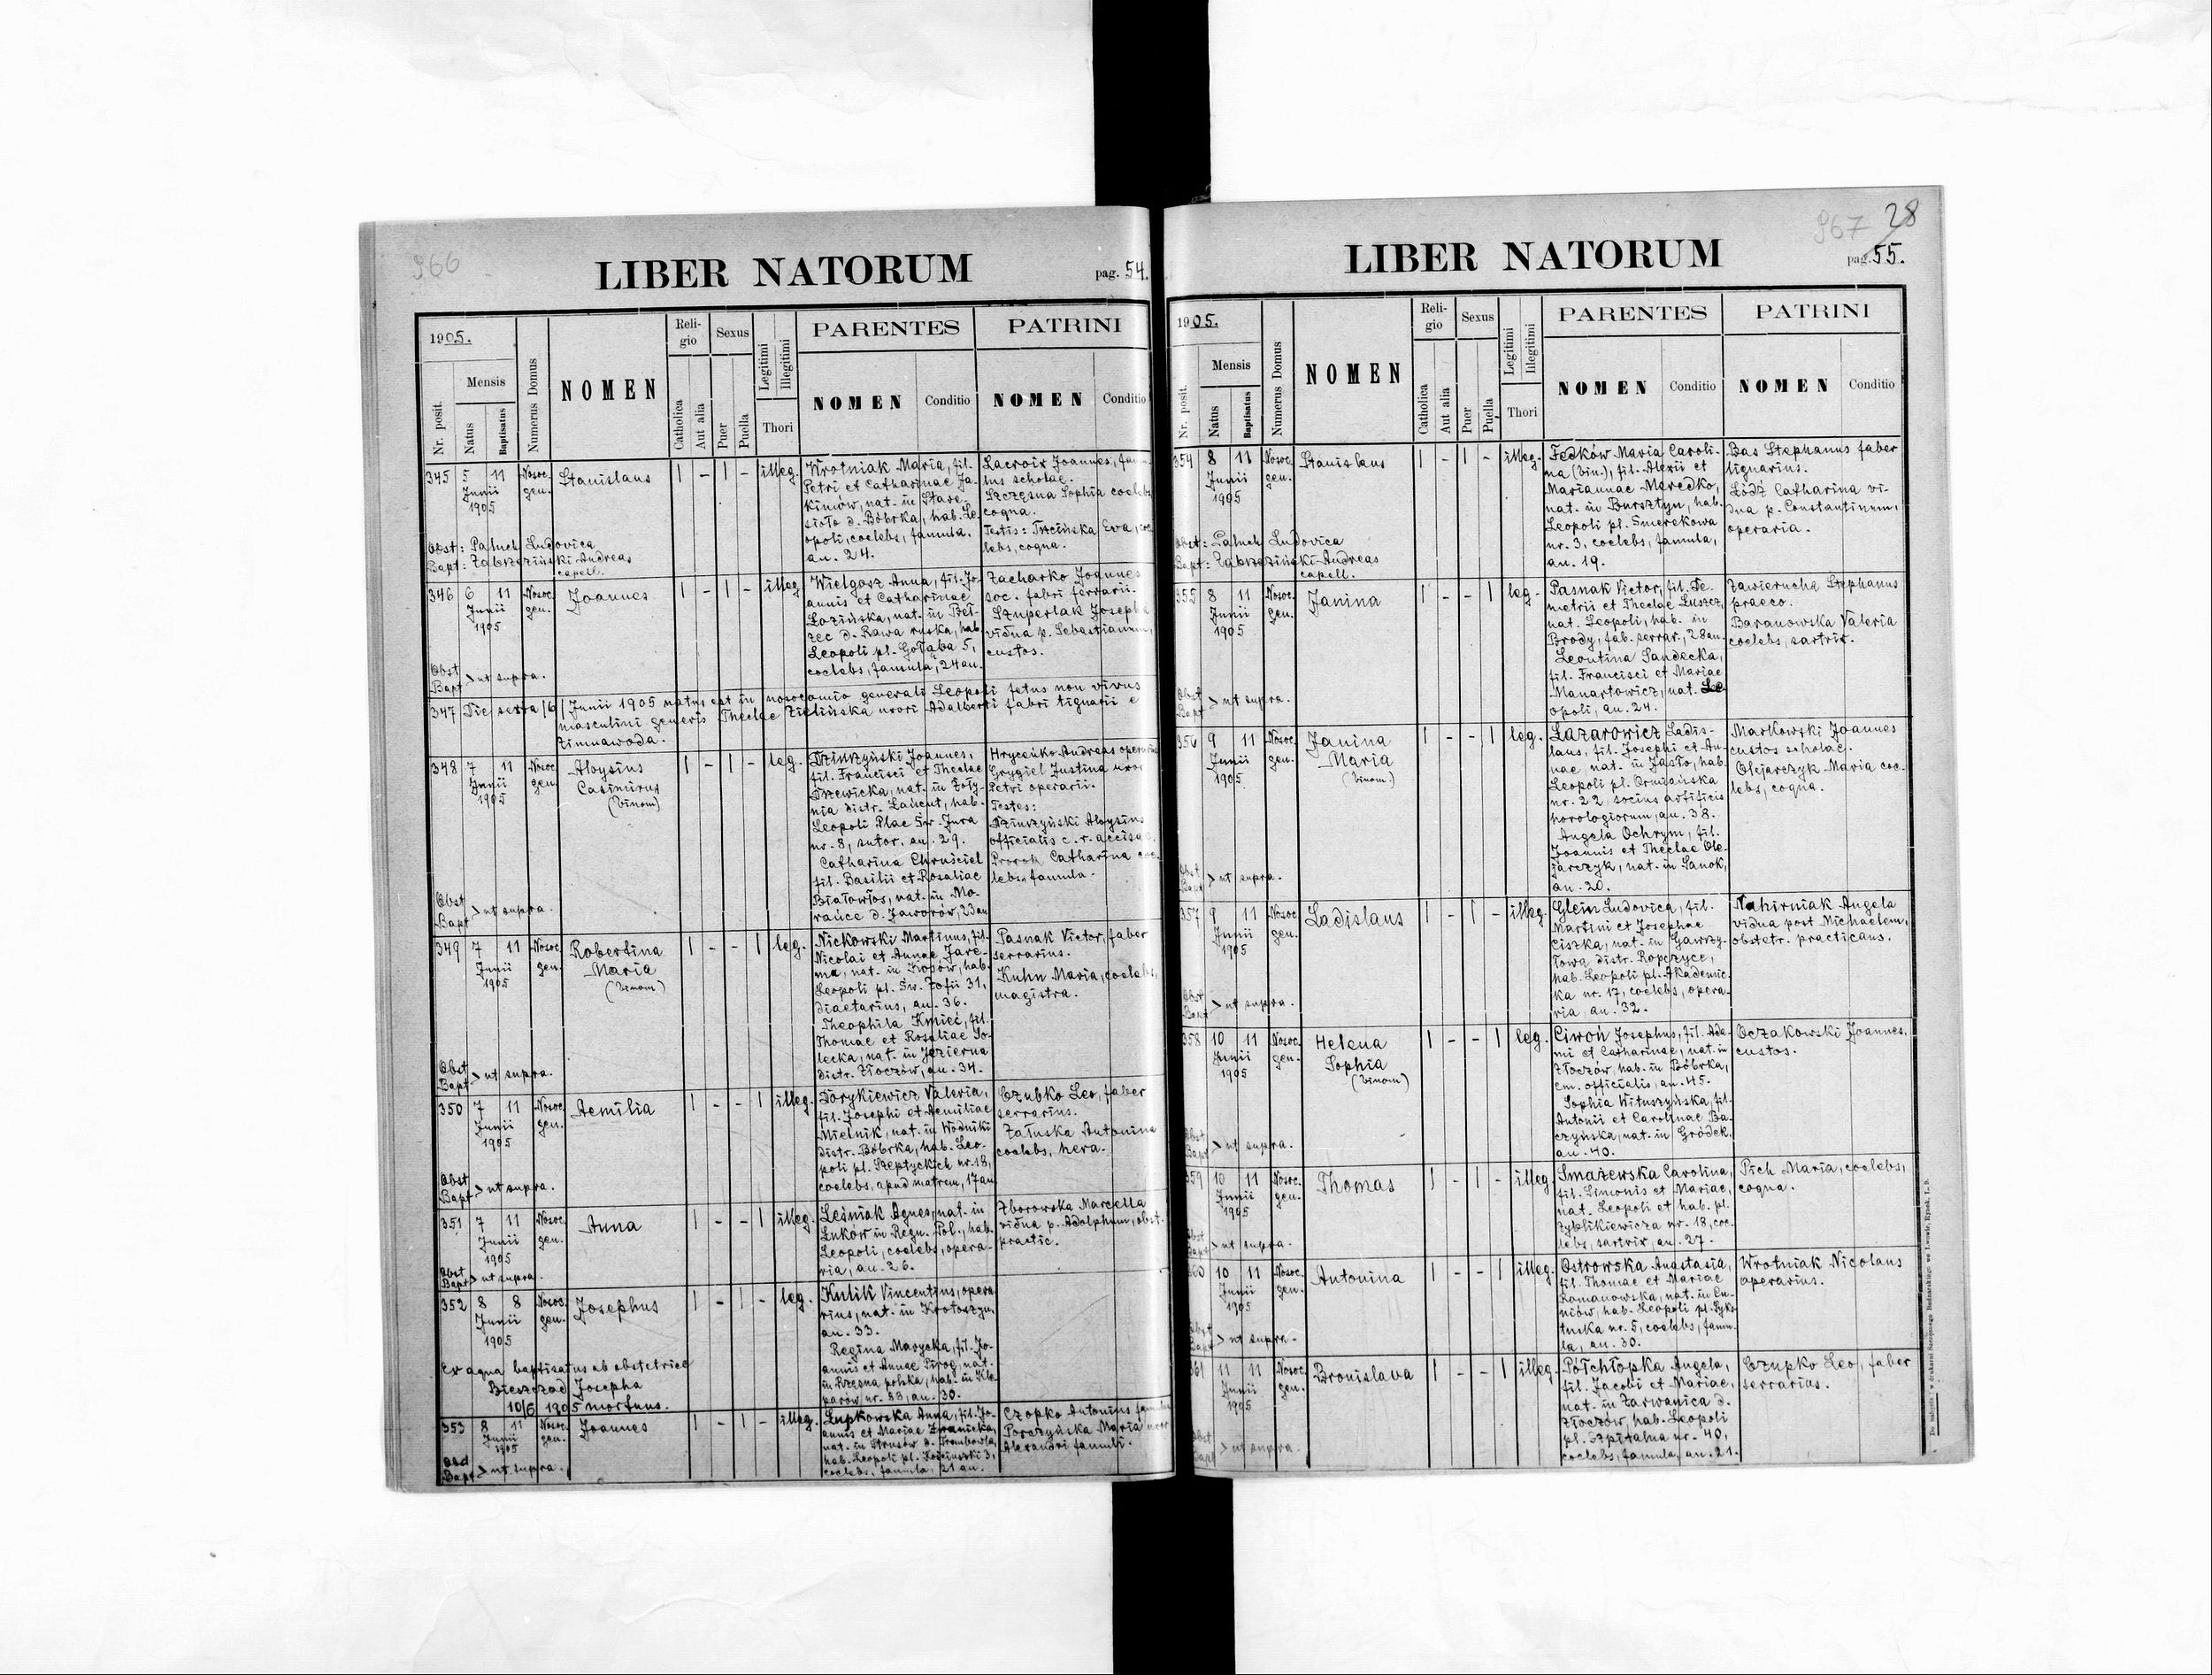 966
LIBER NATORUM
pag. 54.
1905.
Nr. posit.
Mensis
Natus
Baptisatus
Numerus Domus
NOMEN
Religio
Catholica
Aut alia
Sexus
Puer
Puella
Legitimi
Illegitimi
Thori
PARENTES
NOMEN
Conditio
PATRINI
NOMEN
Conditio
345 5 11 Nosoc. gen. Stanislaus 1 - 1 - illeg.
Junii
1905
Wrotniak Maria, fil.
Petri et Catharinae Ja-
kimów, nat. in Stare-
sioło d. Bóbrka, hab. Le-
opoli, coelebs, famula,
an. 24.
Lacroix Joannes, fam-
lus scholae.
Szczęsna Sophia coelebs
cogna.
Testis: Trzcińska Eva, coe-
lebs, cogna.
Obst: Paluch Ludovica
Bapt: Zabrzeziński Andreas
capell.
346 6 11 Nosoc. gen. Joannes 1 - 1 - illeg.
Junii
1905
Wielgosz Anna, fil. Jo-
annis et Catharinae
Łozińska, nat. in Beł-
zec d. Rawa ruska, hab.
Leopoli pl. Gołąba 5,
coelebs, famula, 24 an.
Zacharko Joannes
soc. fabri ferrarii.
Szuperlak Josepha
vidua p. Sebastianum,
custos.
Obst
Bapt > ut supra.
347 Die sexta /6/ Junii 1905 natus est in nosocomio generali Leopoli fetus non vivus
masculini generis Theclae Zielińska uxori Adalberti fabri tignarii e
Zimnawoda.
348 7 11 Nosoc. gen. Aloysius 1 - 1 - leg.
Junii
1905
Casimirus
(binom)
Dziurzyński Joannes,
fil. Francisci et Theclae
Drzewicka, nat. in Żoły-
nia distr. Łańcut, hab.
Leopoli Plac Św. Jura
nr. 8, sutor, an. 29.
Catharina Chruściel
fil. Basilii et Rosaliae
Białowłos, nat. in Mo-
rańce d. Jaworów, 23 an
Hryceńko Andreas operarius
Grygiel Justina uxor
Petri operarii.
Testes:
Dziurzyński Aloysius
officialis c. r. accisae.
Prorok Catharina coe-
lebs famula.
Obst
Bapt > ut supra.
349 7 11 Nosoc. gen. Robertina 1 - - 1 leg.
Junii
1905
Maria
(binom)
Nickowski Martinus, fil.
Nicolai et Annae Jare-
ma, nat. in Kosów, hab.
Leopoli pl. Św. Zofii 31,
diaetarius, an. 36.
Theophila Kmieć, fil.
Thomae et Rosaliae So-
lecka, nat. in Jezierna
distr. Złoczów, an. 34.
Pasnak Victor, faber
serrarius.
Kuhn Maria, coelebs,
magistra.
Obst
Bapt > ut supra.
350 7 11 Nosoc. gen. Aemilia 1 - - 1 illeg.
Junii
1905
Dorykiewicz Valeria,
fil. Josephi et Aemiliae
Mielnik, nat. in Wodniki
distr. Bóbrka, hab. Leo-
poli pl. Szeptyckich nr. 18,
coelebs, apud matrem, 17 an
Czubko Leo, faber
serrarius.
Załuska Antonina
coelebs, hera.
Obst
Bapt > ut supra.
351 7 11 Nosoc. gen. Anna 1 - - 1 illeg.
Junii
1905
Leśniak Agnes, nat. in
Łuków in Regn. Pol., hab.
Leopoli, coelebs, opera-
ria, an. 26.
Zborowska Marcella
vidua p. Adolphum, obst.
practic.
Obst
Bapt > ut supra.
352 8 8 Nosoc. gen. Josephus 1 - 1 - leg.
Junii
1905
Kulik Vincentius, opera-
rius, nat. in Krotoszyn,
an. 33.
Regina Marycka, fil. Jo-
annis et Annae Pirog, nat.
in Rzęsna polska, hab. in Kle-
parów nr. 83, an. 30.
Ex aqua baptisatus ab obstetrice
Bieszczad Josepha
10/6 1905 mortuus.
353 8 11 Nosoc. gen. Joannes 1 - 1 - illeg.
Junii
1905
Łupkowska Anna, fil. Jo-
annis et Mariae
nat. in Strusów d. Trembowla,
hab. Leopoli pl. 3,
coelebs, famula, 21 an.
Czopko Antonius famulus
Porczyńska Maria uxor
Alexandri famuli.
Obst
Bapt > ut supra.
967
28
LIBER NATORUM
pag. 55.
1905.
Nr. posit.
Mensis
Natus
Baptisatus
Numerus Domus
NOMEN
Religio
Catholica
Aut alia
Sexus
Puer
Puella
Legitimi
Illegitimi
Thori
PARENTES
NOMEN
Conditio
PATRINI
NOMEN
Conditio
354 8 11 Nosoc. gen. Stanislaus 1 - 1 - illeg.
Junii
1905
Fedków Maria Caroli-
na (bin.), fil. Alexii et
Mariannae Maredko,
nat. in Bursztyn, hab.
Leopoli pl. Smerekowa
nr. 3, coelebs, famula,
an. 19.
Bas Stephanus faber
lignarius.
Łódź Catharina vi-
dua p. Constantinum,
operaria.
Obst: Paluch Ludovica
Bapt: Zabrzeziński Andreas
capell.
355 8 11 Nosoc. gen. Janina 1 - - 1 leg.
Junii
1905
Pasnak Victor, fil. De-
metrii et Theclae Łuszcz,
nat. Leopoli, hab. in
Brody, fab. serrar., 28 an.
Leontina Sandecka,
fil. Francisci et Mariae
Manartowicz, nat. Le-
opoli, an. 24.
Zawierucha Stephanus
praeco.
Baranowska Valeria
coelebs, sartrix.
Obst
Bapt > ut supra.
356 9 11 Nosoc. gen. Janina 1 - - 1 leg.
Junii
1905
Maria
(binom)
Łazarowicz Ladis-
laus, fil. Josephi et An-
nae nat. in Jasło, hab.
Leopoli pl. Ormiańska
nr. 22, socius artificis
horologiorum, an. 38.
Angela Ochrym, fil.
Joannis et Theclae Ole-
jarczyk, nat. in Sanok,
an. 20.
Markowski Joannes
custos scholae.
Olejarczyk Maria coe-
lebs, cogna.
Obst
Bapt > ut supra.
357 9 11 Nosoc. gen. Ladislaus 1 - 1 - illeg.
Junii
1905
Glein Ludovica, fil.
Martini et Josephae
Ciszka, nat. in Gawrzy-
łowa distr. Ropczyce,
hab. Leopoli pl. Akademic-
ka nr. 17, coelebs, opera-
ria, an. 32.
Nahirniak Angela
vidua post Michaelem,
obstetr. practicans.
Obst
Bapt > ut supra.
358 10 11 Nosoc. gen. Helena 1 - - 1 leg.
Junii
1905
Sophia
(binom)
Ciwoń Josephus, fil. Ada-
mi et Catharinae, nat. in
Złoczów, hab. in Bóbrka,
em. officialis, an. 45.
Sophia Wituszyńska, fil.
Antonii et Carolinae Ba-
czyńska, nat. in Gródek,
an. 40.
Oczakowski Joannes,
custos.
Obst
Bapt > ut supra.
359 10 11 Nosoc. gen. Thomas 1 - 1 - illeg.
Junii
1905
Smażewska Carolina,
fil. Simonis et Mariae,
nat. Leopoli et hab. pl.
Zyblikiewicza nr. 18, coe-
lebs, sartrix, an. 27.
Pich Maria, coelebs,
cogna.
Obst
Bapt > ut supra.
360 10 11 Nosoc. gen. Antonina 1 - - 1 illeg.
Junii
1905
Ostrowska Anastasia,
fil. Thomae et Mariae
Romanowska, nat. in Cu-
niów, hab. Leopoli pl. Syks-
tuska nr. 5, coelebs, famu-
la, an. 30.
Wrotniak Nicolaus
operarius.
Obst
Bapt > ut supra.
361 11 11 Nosoc. gen. Bronislava 1 - - 1 illeg.
Junii
1905
Półchłopka Angela,
fil. Jacobi et Mariae,
nat. in Zarwanica d.
Złoczów, hab. Leopoli
pl. Szpitalna nr. 40,
coelebs, famula, an. 21.
Czupko Leo, faber
serrarius.
Obst
Bapt > ut supra.